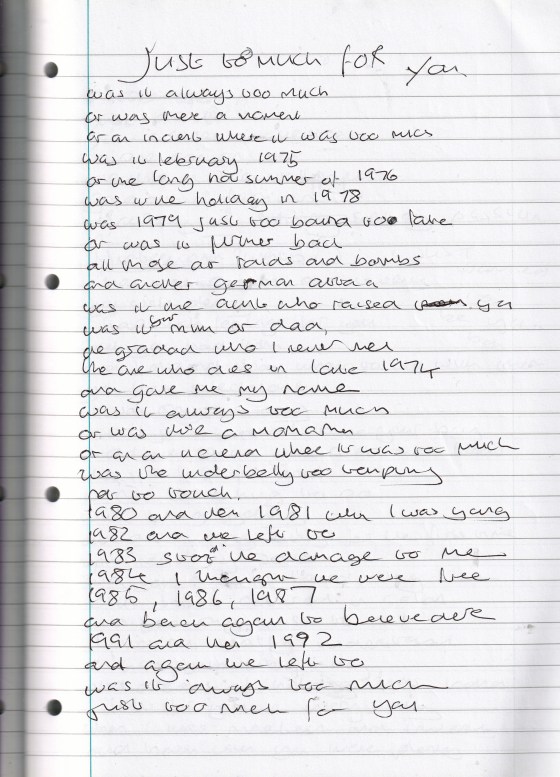 Just too much for you
was it always too much
or was there a moment
or an incident where it was too much
was it february 1975
or the long hot summer of 1976
was it the holiday in 1978
was 1979 just too bound too late
or was it further back
all those air raids and bombs
and another german attack
was it the aunt who raised you
was it your mum or dad,
the grandad who I never met
the one who dies in late 1974
and gave me my name
was it always too much
or was there a moment
or an incident where it was too much
was the underbelly too tempting
not to touch,
1980 and then 1981 when I was young
1982 and we left too
1983 the damage to me
1984 I thought we were free
1985, 1986, 1987
and back again to belvedere
1991 and then 1992
and again we left too
was it always too much
just too much for you